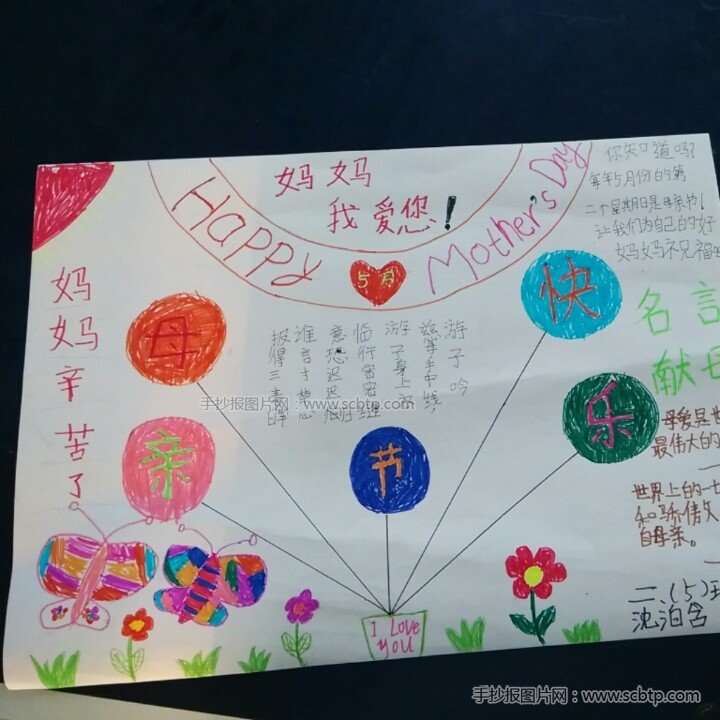 妈妈
我爱您!
Happy
Mother's Day
5月
你知道吗?
每年5月份的第
二个星期日是母亲节!
让我们为自己的好
妈妈祝福
妈妈辛苦了
母
亲
节
快
乐
游子吟
慈母手中线
游子身上衣
临行密密缝
意恐迟迟归
谁言寸草心
报得三春晖
名言
献母
母爱是世
最伟大的
世界上的一
和骄傲
自母亲。
I Love
you
二、(5)班
沈泊含
手抄报图片网:www.scbtp.com
手抄报图片网:www.scbtp.com